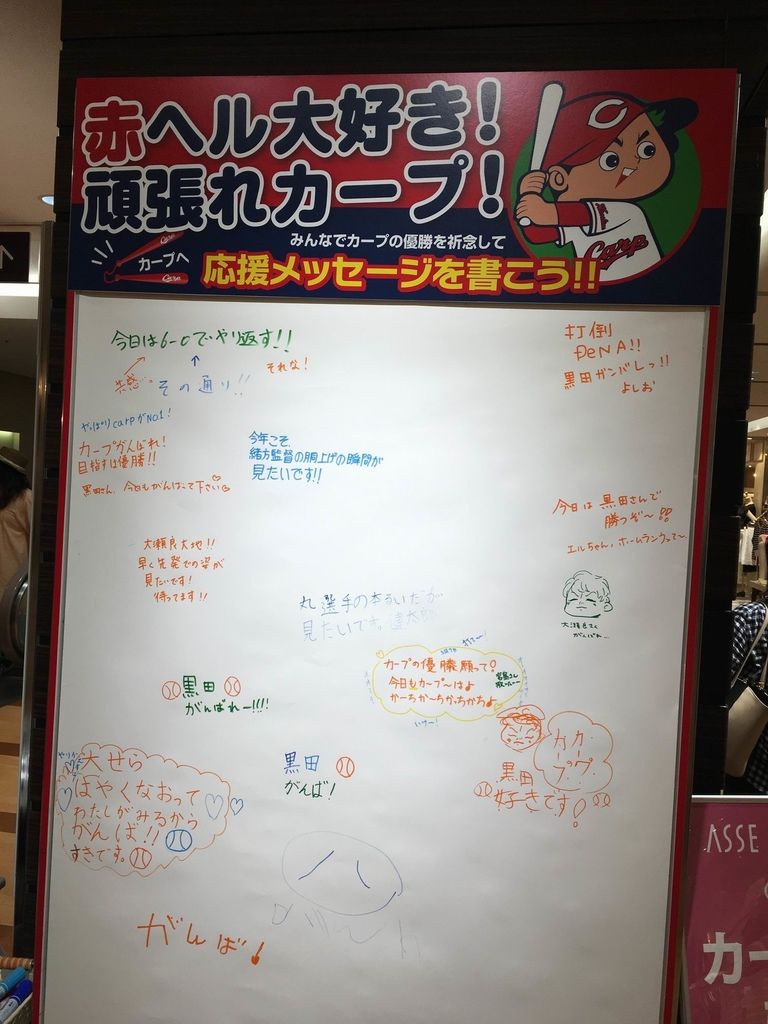 赤ヘル大好き!
頑張れカープ!
みんなでカープの優勝を祈念して
カープへ
応援メッセージを書こう!!
C
Carp
今日は6-0でやり返す!!
それな!
その通り!!
打倒
DeNA!!
黒田ガンバレっ!!
よしお
やっぱりcarpがNo.1!
カープがんばれ!
目指すは優勝!!
黒田さん、今日もがんばって下さい
今年こそ
緒方監督の胴上げの瞬間が
見たいです!!
今日は黒田さんで
勝つぞ〜!!
エルちゃん、ホームランうって〜
大瀬良大地!!
早く先発での姿が
見たいです!
待ってます!!
丸選手の本るいだが
見たいです。
がんばれ
カープの優勝願って!
今日もカープ〜はよ
かーちかーちかっちかちよ
黒田
がんばれー!!!!
カープ
カープ
黒田
好きです!
黒田
がんば!
大せら
はやくなおって
わたしがみるから
がんば!!
すきです。
がんば!
ASSE
カー